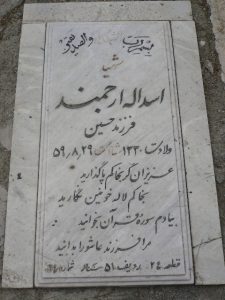 شهید
اسداله ارجمند
فرزند حسین
ولادت ۱۳۳۰ شهادت ۵۹٫۸٫۲۹
عزیزان گر بخاکم پا گذارید
بخاکم لاله خونین بکارید
بیادم سوره قرآن بخوانید
مرا فرزند عاشورا بدانید
قطعه ۲۴ ردیف ۵۱ شماره